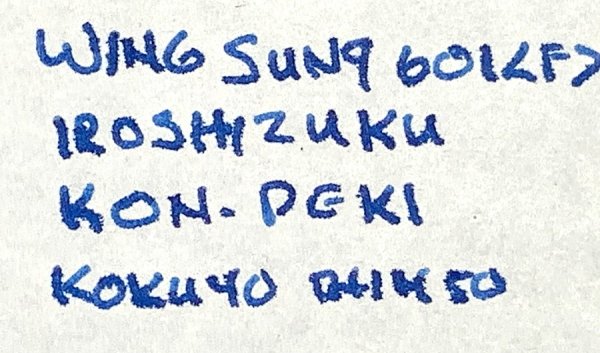 WING SUNG 601<F>
IROSHIZUKU
KON-PEKI
KOKUYO